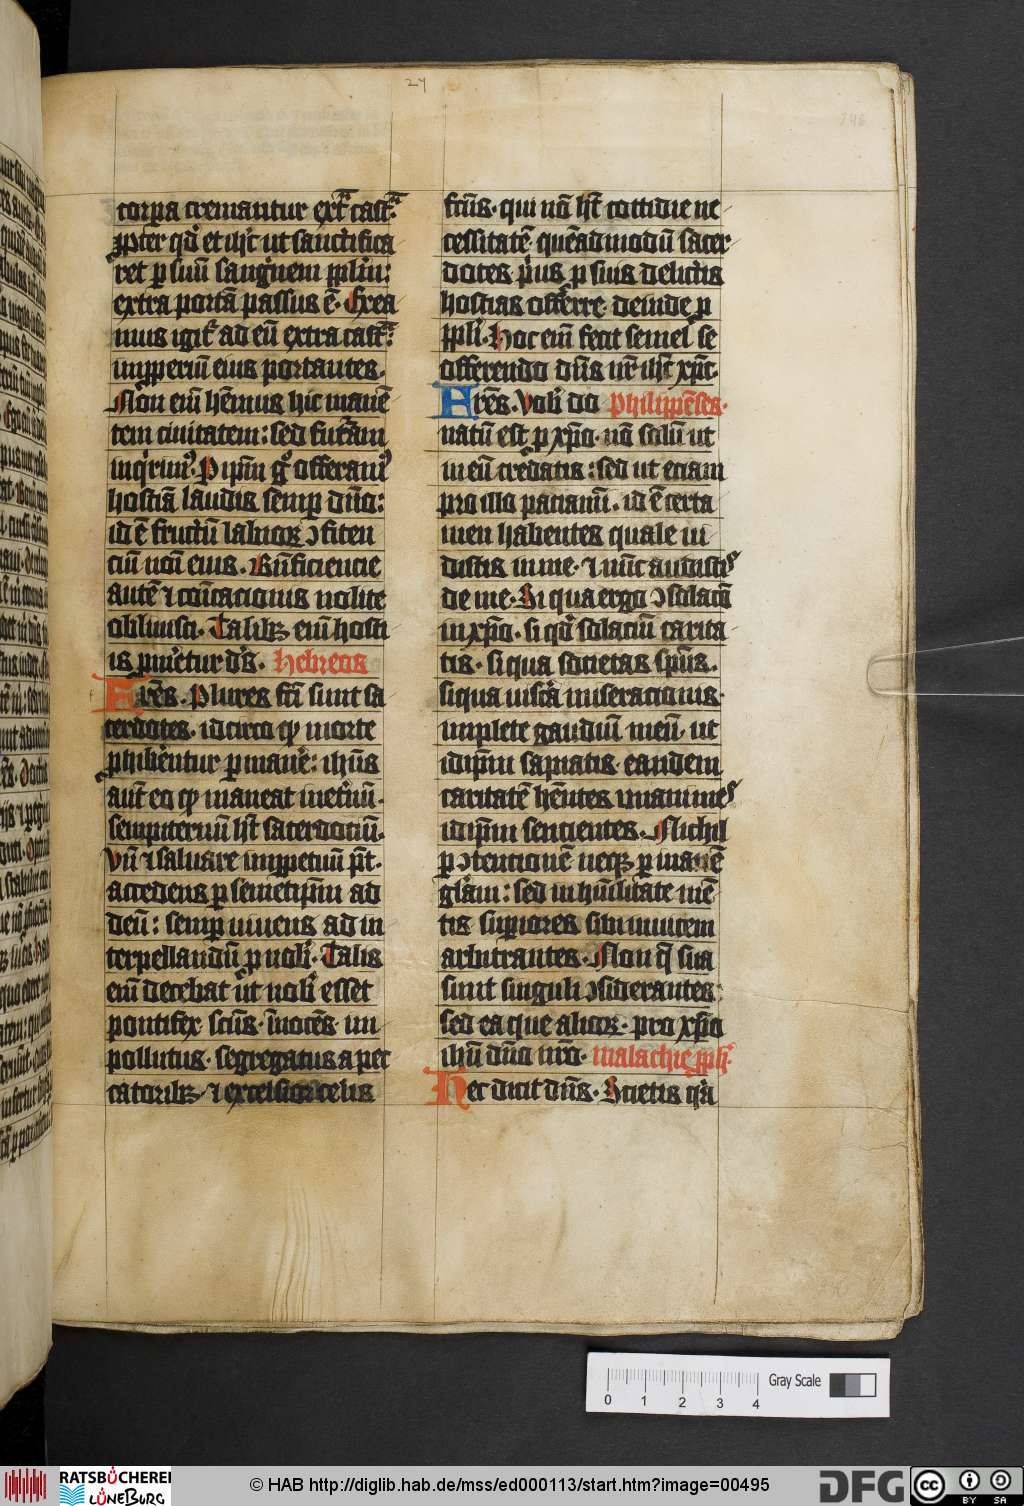 27
246
corpa cremantur ext͛ cast͛.
ꝓpter qđ et ihc̄ ut sanctifica
ret p suū sanguinem pplm̄:
extra portā passus ē. Exea
mus igit͛ ad eū extra cast͛:
impperiū eius portantes.
Nōn em̄ hēmus hic manē
tem ciuitatem: sed futram
inqrimꝰ. P ipm̄ gͦ offeramꝰ
hostiā laudis semp dn̄o:
id ē fructū labioꝝ ↄfiten
ciū nōi eius. Bn̄ficiencie
autē ⁊ cōicacionis nolite
obliuisci. Talibꝫ em̄ hosti
is pmetur ds̄. Hebreos
Fr̄es. Plures fc̄i sunt sa
cerdotes. idcirco ꝙ morte
phibentur pmanē: ihūs
aut̄ eo ꝙ maneat inet͛nū.
sempiternū hꝫ sacerdociū.
Vn̄ ⁊ saluare impꝑetuū pt̄.
accedens p semetipm̄ ad
deū: semp uiuens ad in
terpellandū p nobͥ. Talis
em̄ decebat ut nobͥ esset
pontifex scūs. īnocēs. im
pollutus. segregatus a pec
catoribꝫ. ⁊ excelsior celis
fcūs. qui nō hꝫ cottidie ne
cessitatē. quēadmodū sacer
dotes. pͥus p suis delictis
hostias offerre. deinde p
ppli. Hoc em̄ fecit semel se
offerendo dn̄s nr̄ ihc̄ xpc̄.
Fr̄es. Vobͥ do Philippēses.
natū est p xpo. nō solū ut
in eū credatis: sed ut eciam
pro illo paciamī. id ē certa
men habentes quale ui
distis in me. ⁊ nūc audistꝭ
de me. Si qua ergo ↄsolacō
in xpo. si qđ solaciū carita
tis. si qua societas sps̄.
siqua uiscͣa miseracionis.
implete gaudiū meū. ut
idipm̄ sapiatis. eandem
caritatē hn̄tes unanimeꝭ
idipm̄ sencientes. Nichil
p ↄtencionē neqꝫ p inanē
glām: sed in hūilitate mē
tis supiores sibi inuicem
arbitrantes. Non q̄ sua
sunt singuli ↄsiderantes:
sed ea que alioꝝ. pro xpo
ihu dn̄o nr̄o. malachie pph͛.
Hec dicit dn̄s. Scietis qͥa
0 1 2 3 4
Gray Scale
RATSBÜCHEREI
LÜNEBURG
© HAB http://diglib.hab.de/mss/ed000113/start.htm?image=00495
DFG
cc BY SA